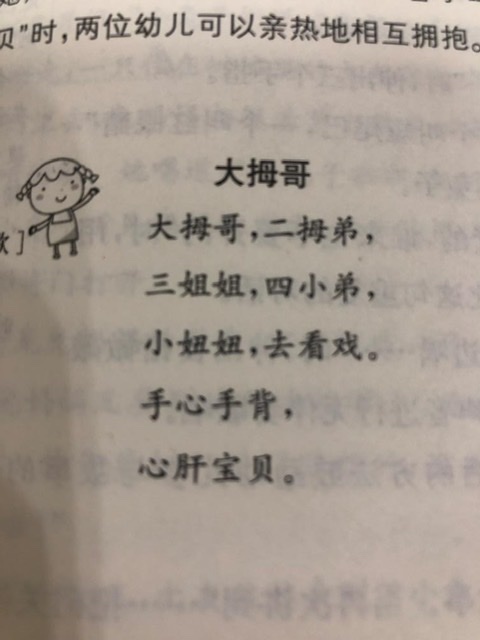 贝”时,两位幼儿可以亲热地相互拥抱。
大拇哥
大拇哥,二拇弟,
三姐姐,四小弟,
小妞妞,去看戏。
手心手背,
心肝宝贝。